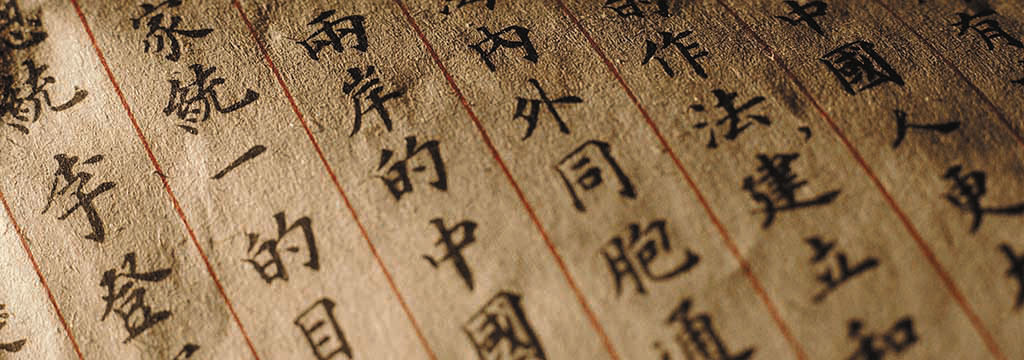 有
中國人更
的作法建立和
海內外同胞通
兩岸的中國
家統一的目
總統李登